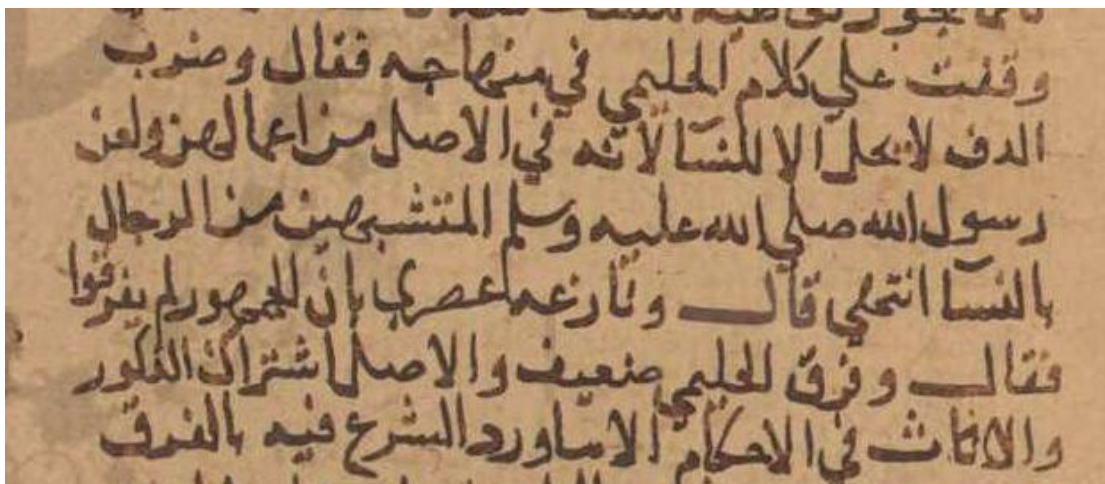 وقفت علي كلام الحليمي في منهاجه فقال وضرب
الدف لا يحل الا للنسا لانه في الاصل من اعمالهن ولعن
رسول الله صلي الله عليه وسلم المتشبهين من الرجال
بالنسا انتهي قال ونازعه عصري بان الجمهور لم يفرقوا
فقال وفرق الحليمي ضعيف والاصل اشتراك الذكور
والاناث في الاحكام الا ما ورد الشرع فيه بالفرق